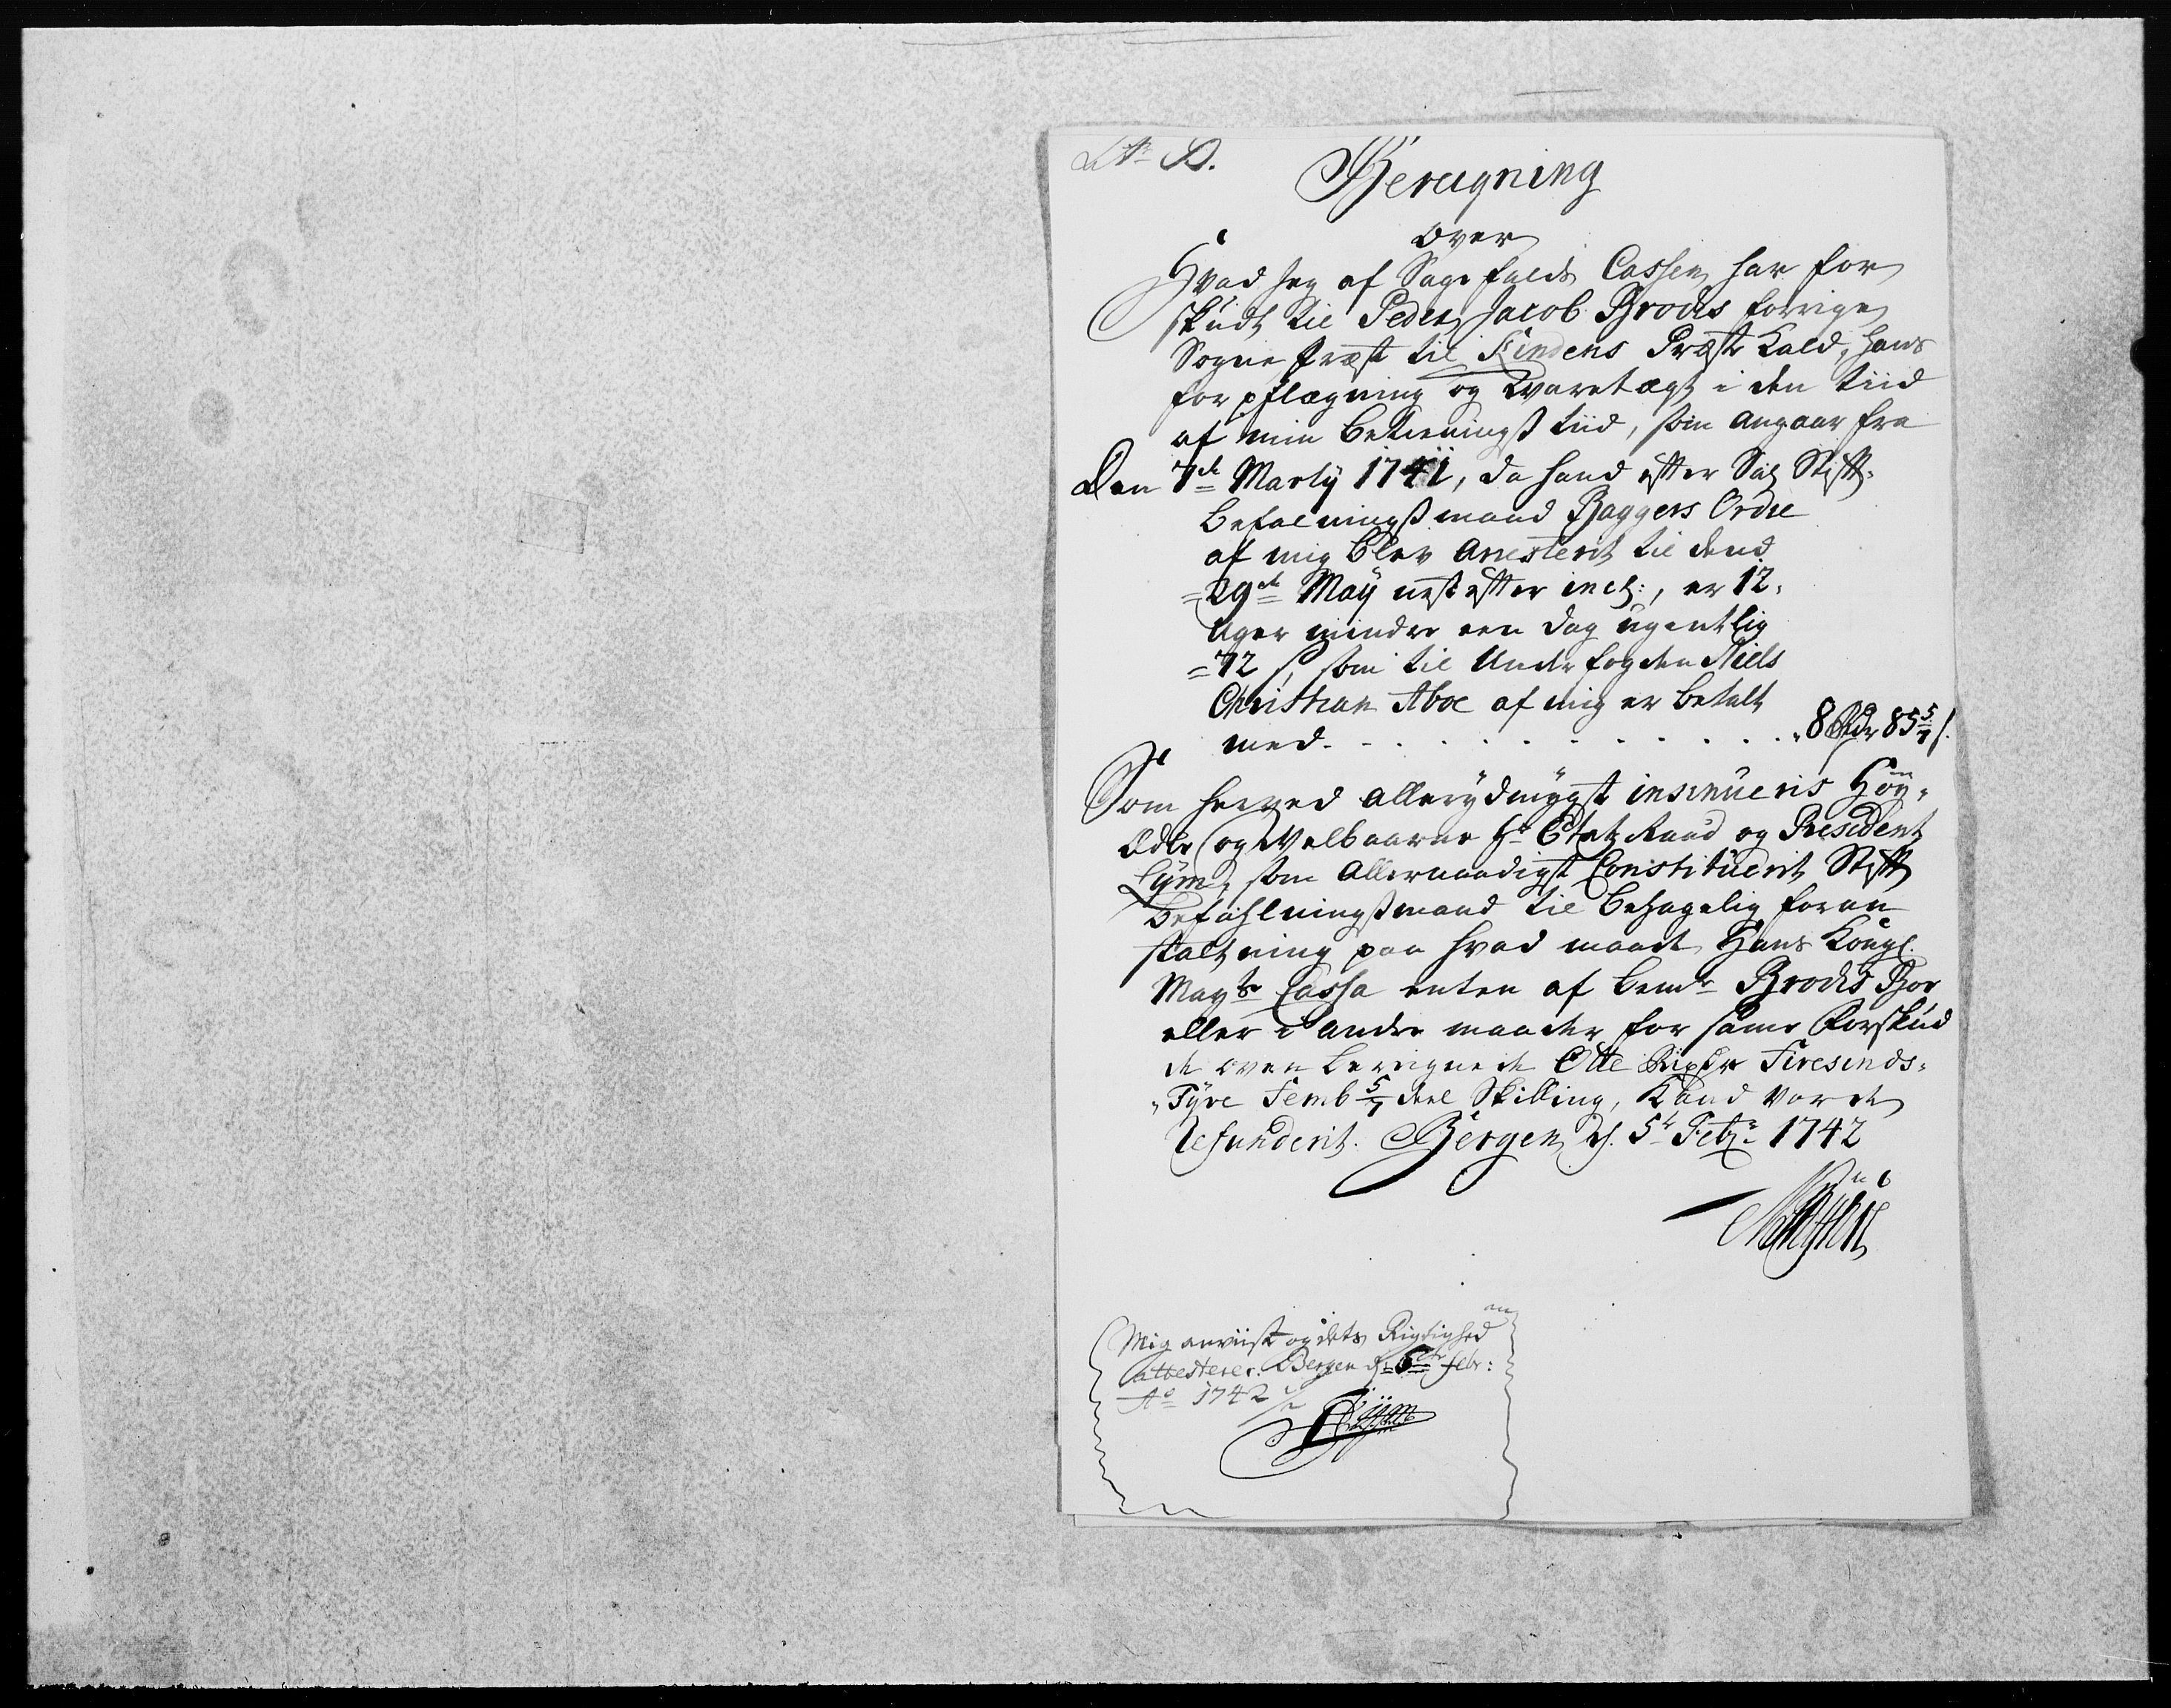 Beregning
over
Hvad Jeg af Sagefalds Cassen har for
skudt til Peder Jacob Brodes forrige
Sogne Præst til Kindens Præste Kald, hans
forpflægning og Waretægt i den tiid
af min betieningß tiid, som angaar fra
Den 7de Marty 1741, da hand efter Sal Stift-
befalningßmand Baggers Ordre
af mig blev Arresterit til dend
29de May nestefter incl:, er 12
Uger mindre een dag ugentlig
72 s, som til Underfogden Niels
Christian Aboe af mig er betalt
med . . . . . . . . . . . . 8 Rdr 85 5/7 s.
Som herved allerydmygst insinueris Høy-
Ædle og Velbaarne Hr Etatz Raad og Præsident
Lÿm, som Allernaadigst Constituerit Stift
befahlningßmand til behagelig foran
staltning paa hvad maade Hans Kongl.
Mayts Cassa enten af bemte Brodes Boe
eller i andre maader for samme Forskud
de oven beregnede Otte Rixdr Firesinds-
Tyve Femb 5/7 deel Skilling, Kand vorde
Refunderit. Bergen d. 5te Febr: 1742
Mig anviist og dets Rigtighed
attesterer. Bergen d: 6te Febr:
Ao 1742
Lÿm